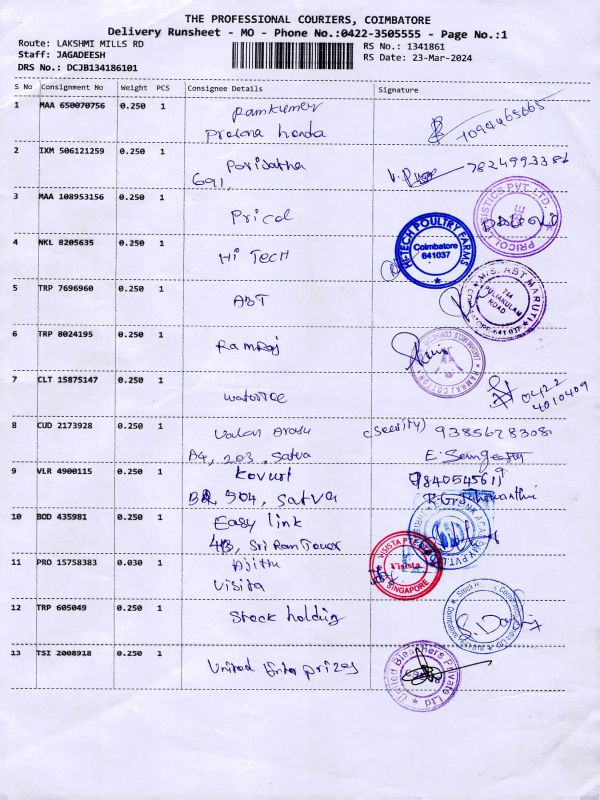 THE PROFESSIONAL COURIERS, COIMBATORE
Delivery Runsheet - MO - Phone No.:0422-3505555 - Page No.:1
Route: LAKSHMI MILLS RD
RS No.: 1341861
Staff: JAGADEESH
RS Date: 23-Mar-2024
DRS No.: DCJB134186101
S No Consignment No Weight PCS Consignee Details Signature
1 MAA 650070756 0.250 1 Ramkumar
honda
2 IXM 506121259 0.250 1 Parijatha 7824993386
691,
3 MAA 108953156 0.250 1 Pricol
PRICOL LOGISTICS PVT. LTD.
4 NKL 8205635 0.250 1 Hi Tech
HI-TECH POULTRY FARMS
Coimbatore
641037
5 TRP 7696960 0.250 1 ABT
M/S. ABT MARUTI
744
PULIAKULAM
ROAD
6 TRP 8024195 0.250 1 Ramraj
RAMRAJ COTTON
7 CLT 15875147 0.250 1 0422
4010409
8 CUD 2173928 0.250 1 Valan Arasu 9385628308
A4, 203, Satva
9 VLR 4900115 0.250 1 Kovuri 9840545611
504, Satva
10 BOD 435981 0.250 1 Easy link
4B, Sri Ram Tower
11 PRO 15758383 0.030 1 Ajith
Visista
VISISTA PTE
Visista
SINGAPORE
12 TRP 605049 0.250 1 Stock holding
13 TSI 2008918 0.250 1 United Enterprizes
United Bleachers Private Ltd